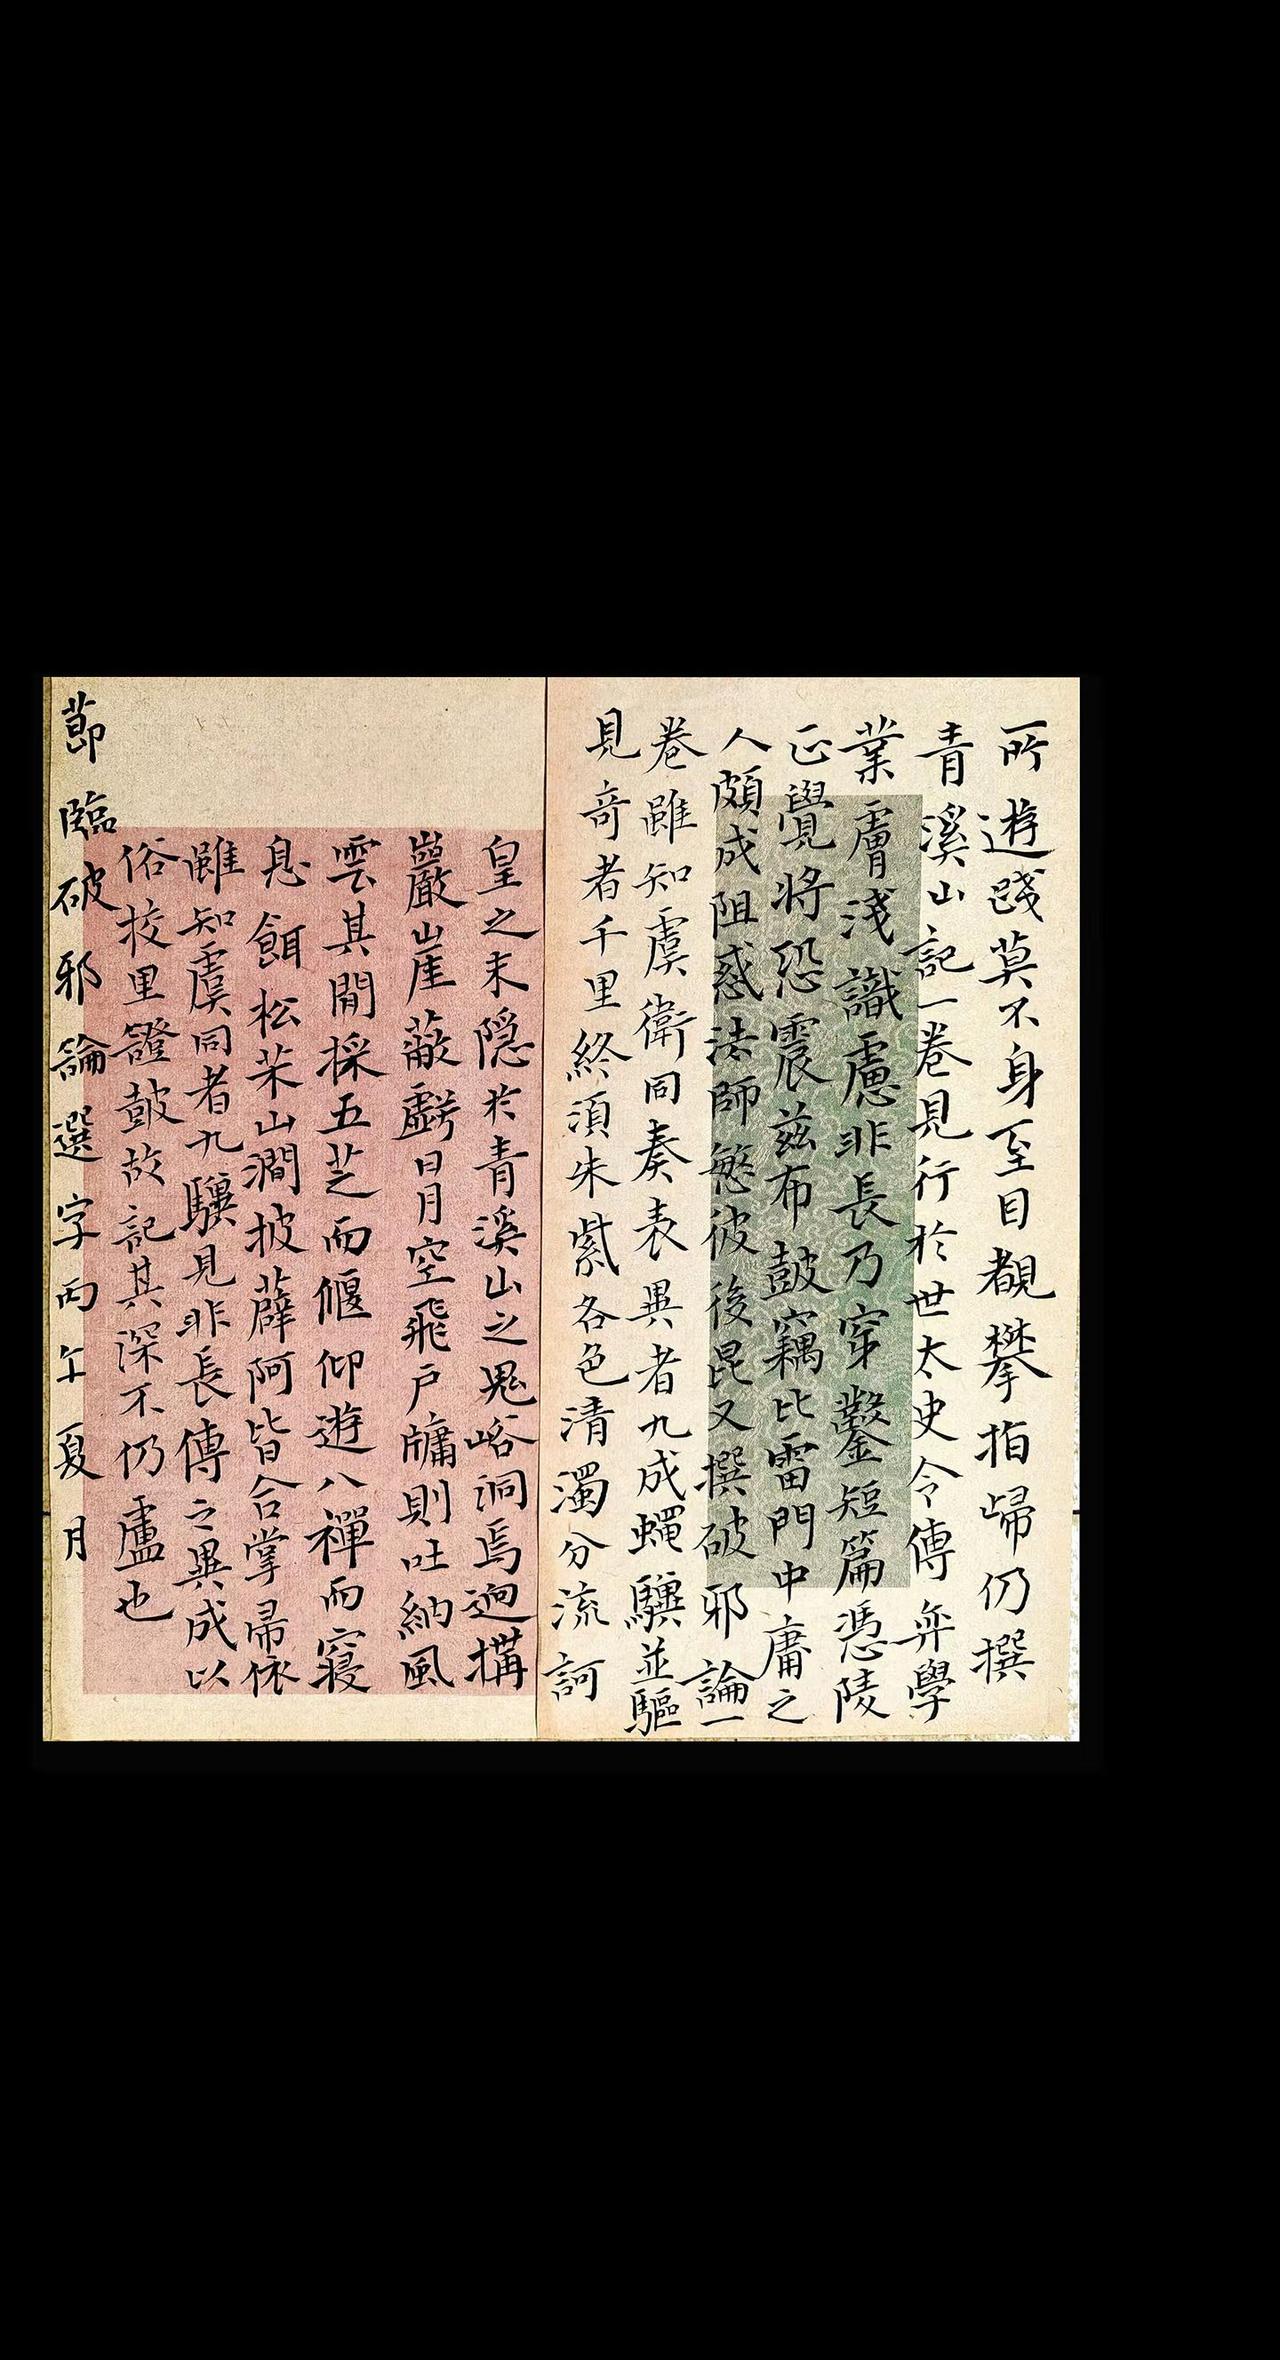 所遊踐莫不身至目覩攀指歸仍撰
青溪山記一卷見行於世太史令傅弈學
業膚淺識慮非長乃穿鑿短篇憑陵
正覺將恐震茲布鼓竊比雷門中庸之
人頗成阻惑法師慜彼後昆又撰破邪論一
卷雖知虞衛同奏表異者九成蠅驥並驅
見奇者千里終須朱紫各色清濁分流訶
皇之末隱於青溪山之鬼峪洞焉迥搆
巖崖蔽虧日月空飛戶牖則吐納風
雲其閒採五芝而偃仰遊八禪而寢
息餌松茱山澗披薜阿皆合掌歸依
雖知虞同者九驥見非長傅之異成以
俗挍里證鼓故記其深不仍盧也
節臨破邪論選字丙午夏月